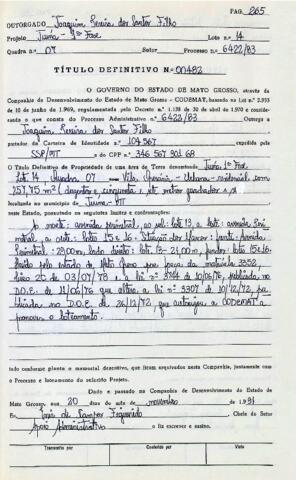 PAG. 265
OUTORGADO Joaquim Pereira dos Santos Filho
Projeto Juína - 1ª Fase Lote n.º 14
Quadra n.º 07 Setor Processo n.º 6422/83
TÍTULO DEFINITIVO N.º 00482
O GOVERNO DO ESTADO DE MATO GROSSO, através da
Companhia de Desenvolvimento do Estado de Mato Grosso - CODEMAT, baseado na Lei n.º 2.933
de 10 de junho de 1969, regulamentada pelo Decreto n.º 1.138 de 30 de abril de 1970 e considerando
o que consta do Processo Administrativo n.º 6422/83 Outorga a
Joaquim Pereira dos Santos Filho
portador da Carteira de Identidade n.º 104.567 expedida pela
SSP/MT e do CPF n.º 346 567 901 68
O Título Definitivo de Propriedade de uma área de Terra denominada Juína 1ª Fase
Lote 14 Quadra 07 Urbana - residencial, com
257,45 m² (duzentos e cinquenta e sete metros quadrados
localizada no município de Juína - MT
neste Estado, possuindo os seguintes limites e confrontações:
Ao norte: avenida perimetral, ao sul: lote 13, a leste: avenida
a oeste: lotes 15 e 16. frente: avenida
lado direito: lote 13 - 21,00 m, fundos: lotes 15 e 16.
pelo estado de Mato Grosso matrícula 3352
de 25 de 07/78 a lei nº de 10/06/76, publicada no
D.O.E. de 11/06/76 que altera a lei nº 3307 de 10/12/72, pu
blicada no D.O.E. de 26/12/72 que autorizou a CODEMAT a
promover o loteamento.
tudo conforme planta e memorial descritivo, que ficam arquivados nesta Companhia, juntamente com
o Processo e loteamento do referido Projeto.
Dado e passado na Companhia de Desenvolvimento do Estado de
Mato Grosso, aos 20 dias do mês de novembro de 1.991
Eu, de Campos Figueiredo Chefe do Setor
Apoio Administrativo o fiz escrever e assino.
Transcrito por Conferido por Visto